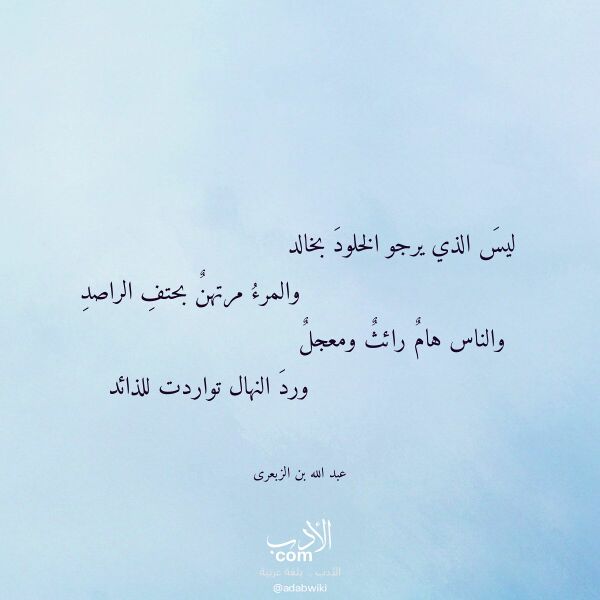 ليسَ الذي يرجو الخلودَ بخالد
والمرءُ مرتهنٌ بحتفِ الراصدِ
والناس هامٌ رائثٌ ومعجلٌ
وردَ النهال تواردت للذائد
عبد الله بن الزبعرى
الأدب
com
الأدب .. بلغة عربية
@adabwiki